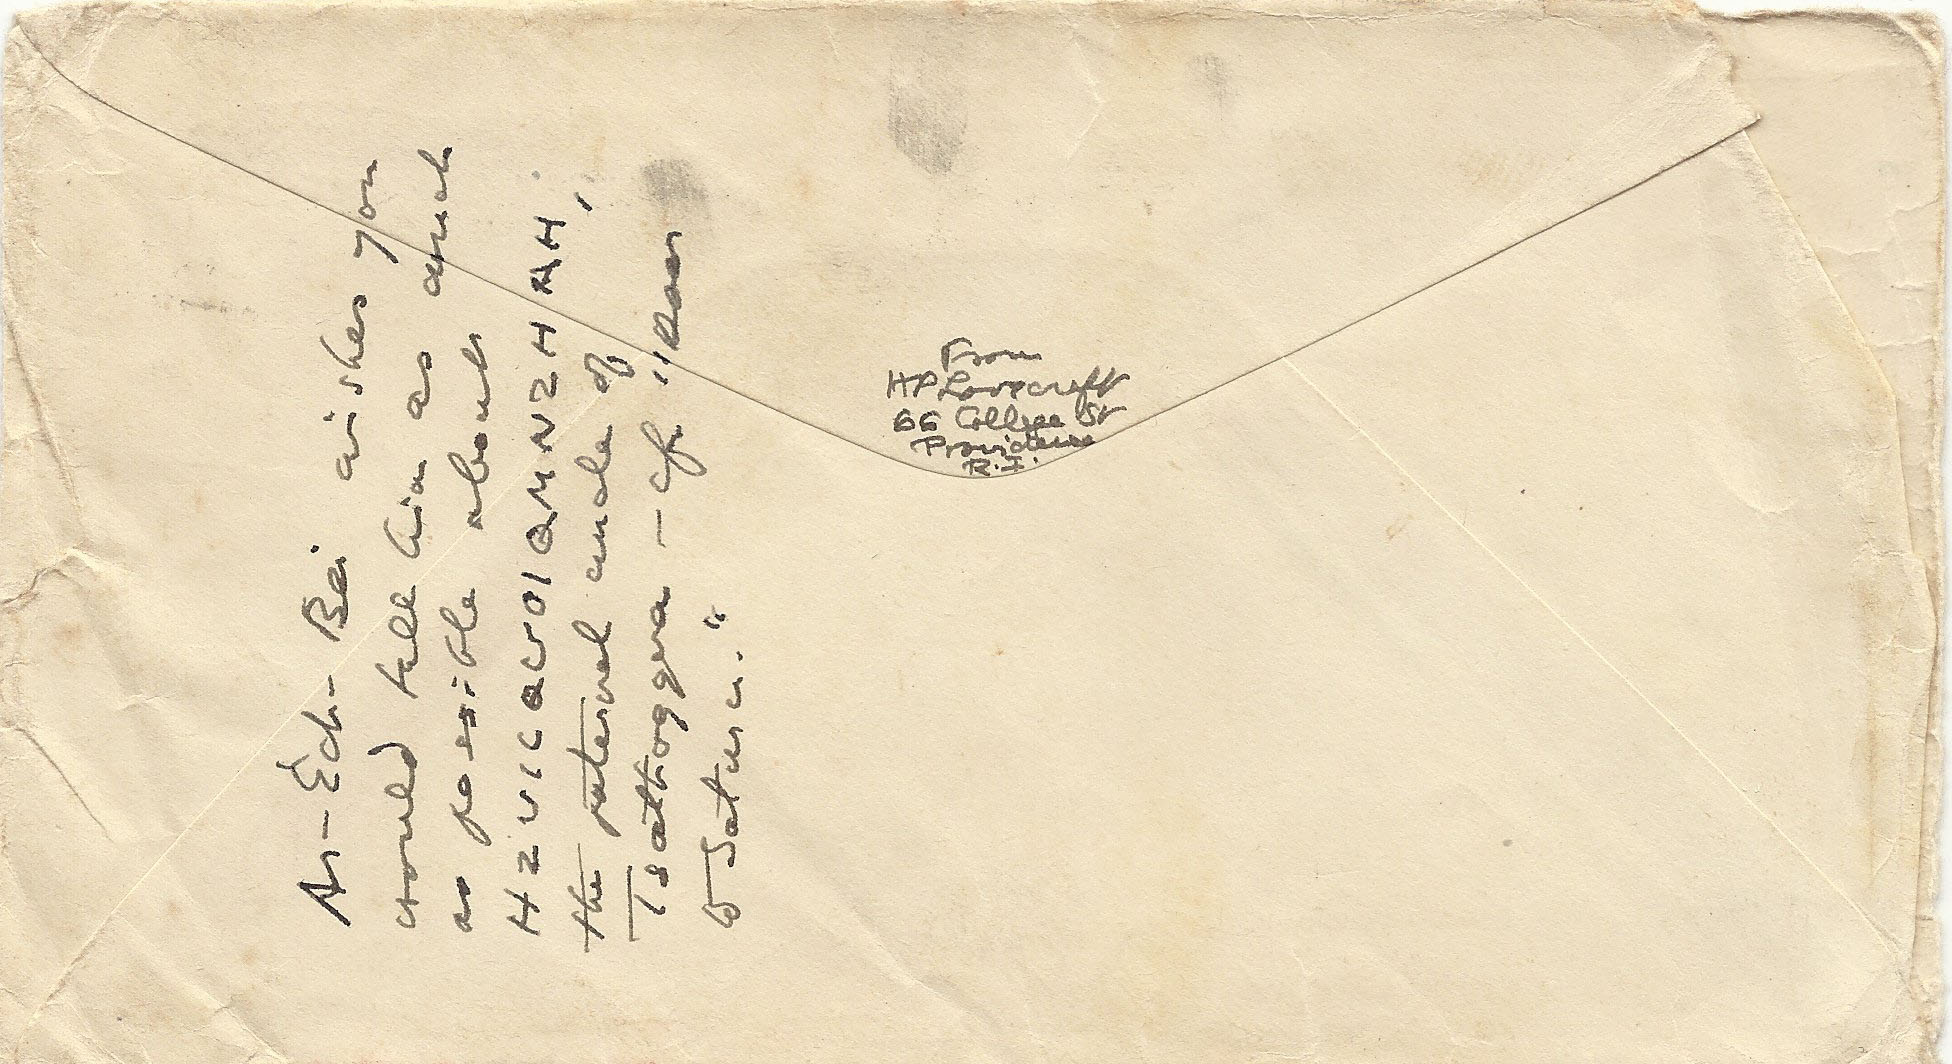 Ar-Ech-Bei wishes you
would tell him as much
as possible about
HZUILQUOIGMNZHAH,
the paternal uncle of
Tsathoggua — cf. "Door
to Saturn."
From
HP Lovecraft
66 College St
Providence
R.I.